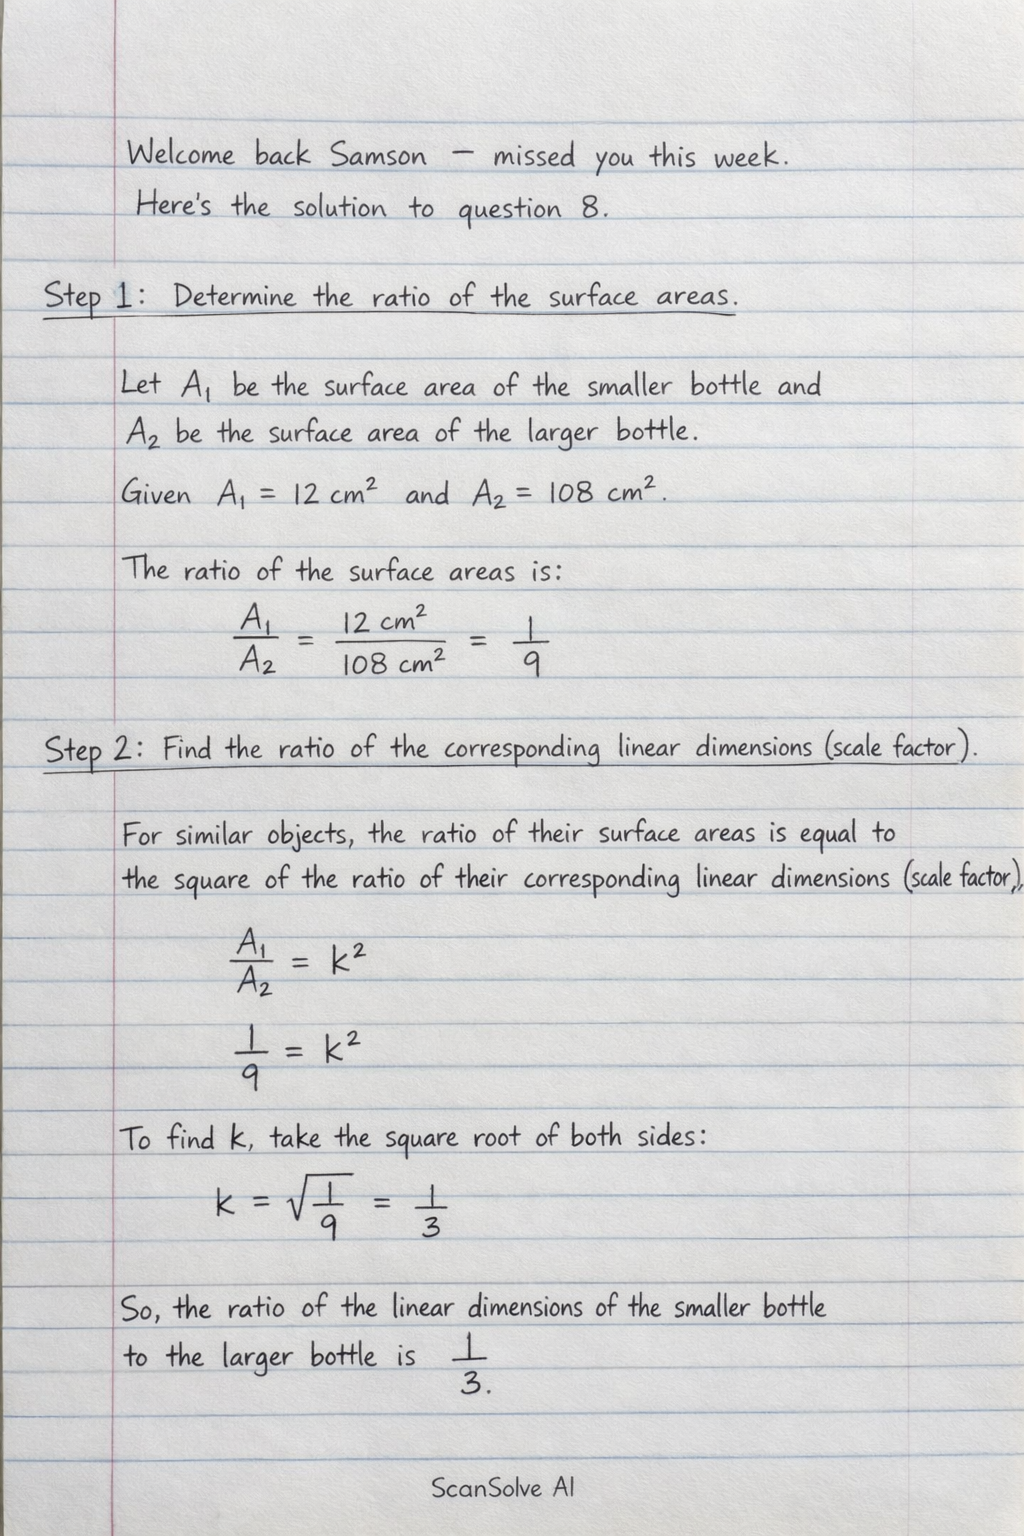 Welcome back Samson — missed you this week.
Here's the solution to question 8.
Step 1: Determine the ratio of the surface areas.
Let A₁ be the surface area of the smaller bottle and
A₂ be the surface area of the larger bottle.
Given A₁ = 12 cm² and A₂ = 108 cm².
The ratio of the surface areas is:
A₁/A₂ = 12 cm²/108 cm² = 1/9
Step 2: Find the ratio of the corresponding linear dimensions (scale factor).
For similar objects, the ratio of their surface areas is equal to
the square of the ratio of their corresponding linear dimensions (scale factor),
A₁/A₂ = k²
1/9 = k²
To find k, take the square root of both sides:
k = √(1/9) = 1/3
So, the ratio of the linear dimensions of the smaller bottle
to the larger bottle is 1/3.
ScanSolve AI